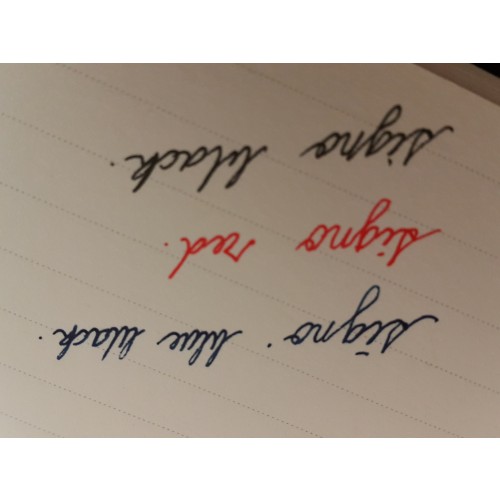 signo blue black.
signo red.
signo black.